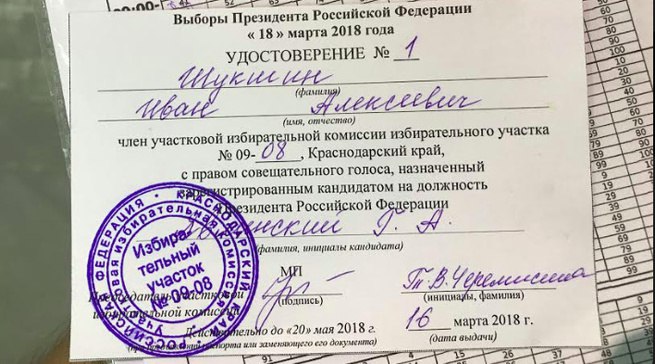 Выборы Президента Российской Федерации
« 18 » марта 2018 года
УДОСТОВЕРЕНИЕ № 1
Шукшин
(фамилия)
Иван Алексеевич
(имя, отчество)
член участковой избирательной комиссии избирательного участка
№ 09-08, Краснодарский край,
с правом совещательного голоса, назначенный
зарегистрированным кандидатом на должность
Президента Российской Федерации
Г. А.
(фамилия, инициалы кандидата)
МП
Председатель участковой
избирательной комиссии
(подпись)
Т.В. Черемисина
(инициалы, фамилия)
Действительно до «20» мая 2018 г.
16 марта 2018 г.
(дата выдачи)
паспорта или заменяющего его документа)
Избира
тельный
участок
№ 09-08
РОССИЙСКАЯ ФЕДЕРАЦИЯ • КРАСНОДАРСКИЙ
Участковая избирательная комиссия